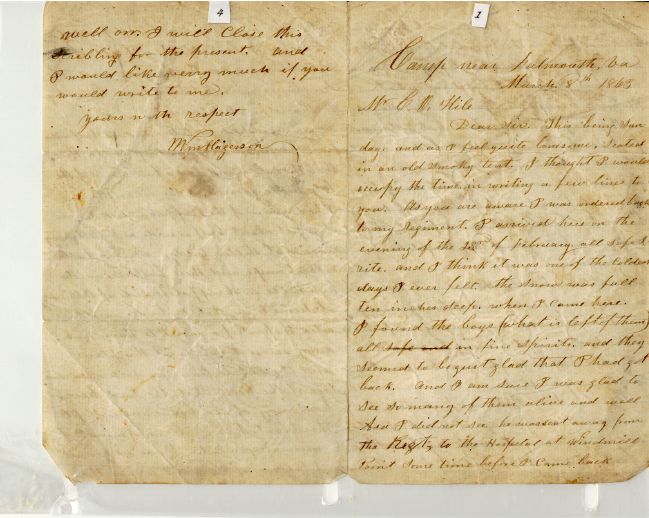 4
well on. I will Close this
scribling for the present. and
I would like very much if you
would write to me.
yours with respect
Wm Higerson
1
Camp near Falmouth, Va
March 8th 1863
Mr. C. W. Hile
Dear Sir. This being Sun
day. and as I feel quite lonsome. Seated
in an old smoky tent, I thought I would
occupy the time in writing a few lines to
you. As you are aware I was ordered back
to my Regiment. I arrived here on the
evening of the of February. all safe &
rite. and I think it was one of the Coldest
days I ever felt. the Snow was full
ten inches deep. when I came here.
I found the boys (what is left of them)
all safe and in fine Spirits. and they
seemed to be quit glad that I had got
back. And I am sure I was glad to
see so many of them alive and well
I did not see. he was sent away from
the Regt, to the Hospital at Windmill
Point Some time before I Came back